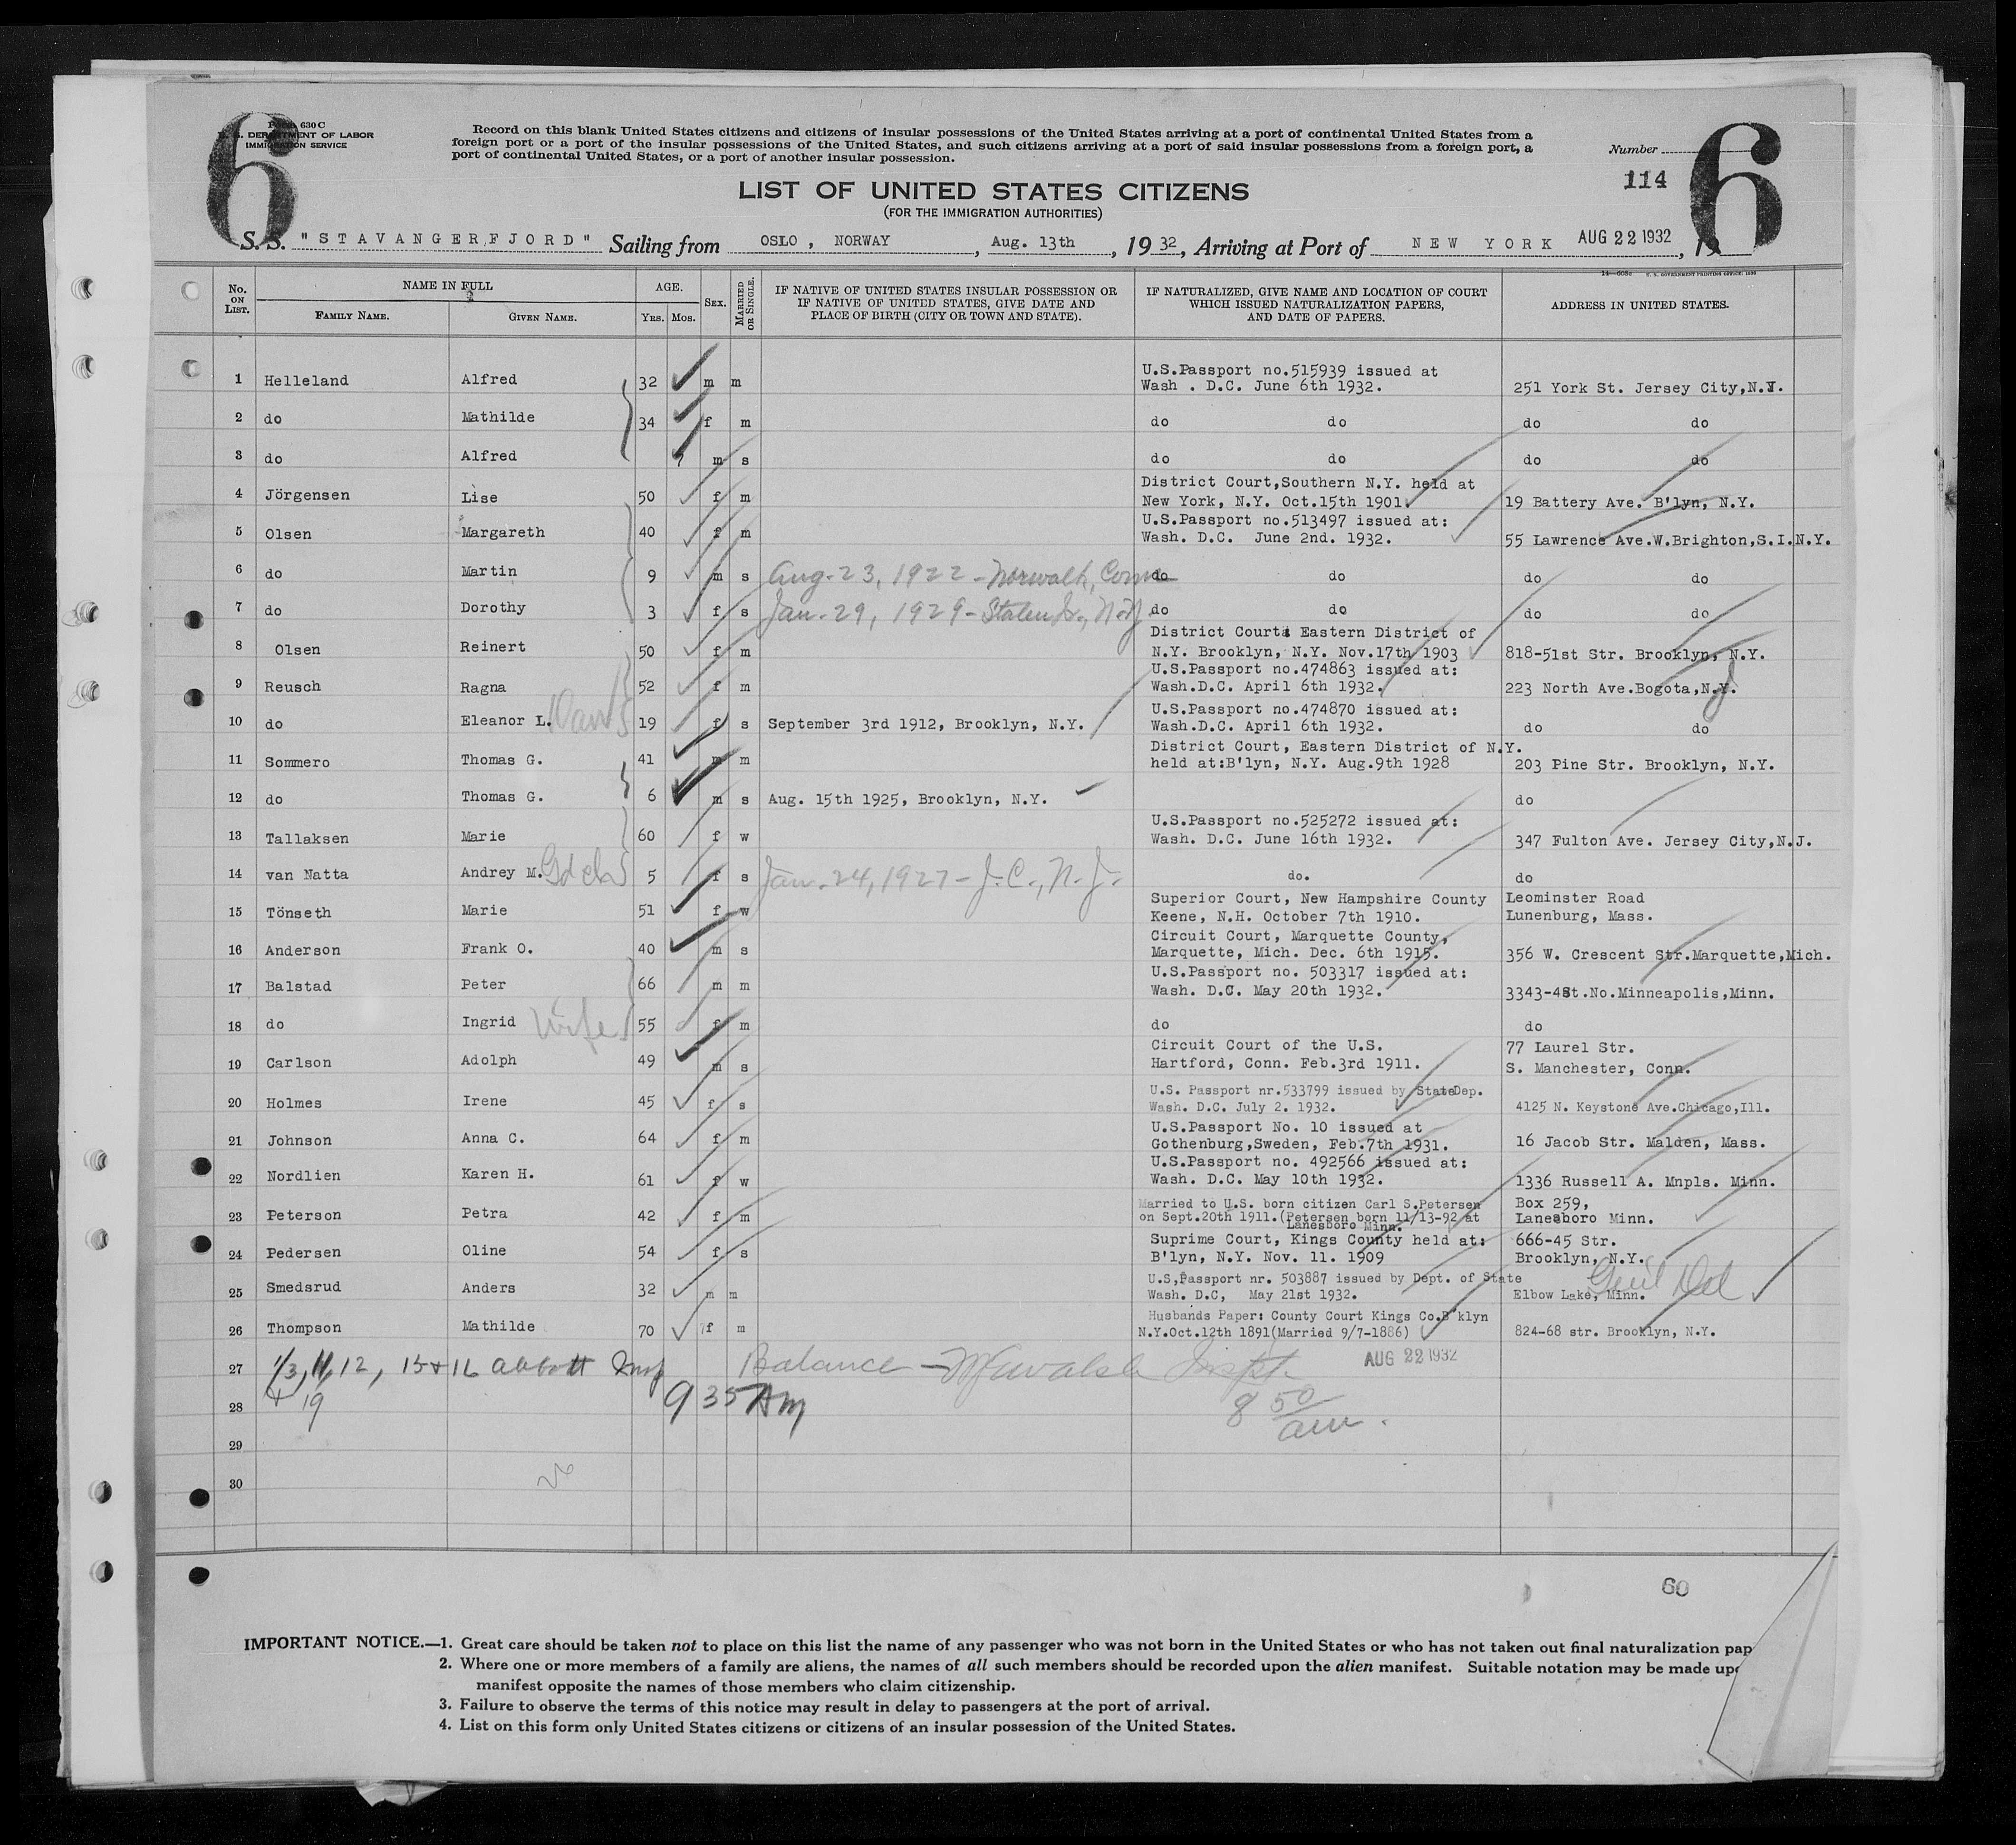 6
Form 630 C
U. S. DEPARTMENT OF LABOR
IMMIGRATION SERVICE
Record on this blank United States citizens and citizens of insular possessions of the United States arriving at a port of continental United States from a
foreign port or a port of the insular possessions of the United States, and such citizens arriving at a port of said insular possessions from a foreign port, a
port of continental United States, or a port of another insular possession.
Number
114
6
LIST OF UNITED STATES CITIZENS
(FOR THE IMMIGRATION AUTHORITIES)
S. S. "STAVANGERFJORD" Sailing from OSLO, NORWAY, Aug. 13th, 1932, Arriving at Port of NEW YORK AUG 22 1932, 19
14—608c U. S. GOVERNMENT PRINTING OFFICE: 
No. ON LIST. NAME IN FULL FAMILY NAME. GIVEN NAME. AGE. YRS. MOS. SEX. MARRIED OR SINGLE. IF NATIVE OF UNITED STATES INSULAR POSSESSION OR IF NATIVE OF UNITED STATES, GIVE DATE AND PLACE OF BIRTH (CITY OR TOWN AND STATE). IF NATURALIZED, GIVE NAME AND LOCATION OF COURT WHICH ISSUED NATURALIZATION PAPERS, AND DATE OF PAPERS. ADDRESS IN UNITED STATES.
1 Helleland Alfred 32 m m U.S.Passport no.515939 issued at Wash . D.C. June 6th 1932. 251 York St. Jersey City,N.J.
2 do Mathilde 34 f m do do do do
3 do Alfred 7 m s do do do do
4 Jörgensen Lise 50 f m District Court,Southern N.Y. held at New York, N.Y. Oct.15th 1901. 19 Battery Ave. B'lyn, N.Y.
5 Olsen Margareth 40 f m U.S.Passport no.513497 issued at: Wash. D.C. June 2nd. 1932. 55 Lawrence Ave.W.Brighton,S.I.N.Y.
6 do Martin 9 m s Aug-23, 1922-Norwalk, Conn do do do do
7 do Dorothy 3 f s Jan-29, 1929-Staten Is., N.Y. do do do do
8 Olsen Reinert 50 f m District Court: Eastern District of N.Y. Brooklyn, N.Y. Nov.17th 1903 818-51st Str. Brooklyn, N.Y.
9 Reusch Ragna 52 f m U.S.Passport no.474863 issued at: Wash.D.C. April 6th 1932. 223 North Ave.Bogota,N.J.
10 do Eleanor L. Dau 19 f s September 3rd 1912, Brooklyn, N.Y. U.S.Passport no.474870 issued at: Wash.D.C. April 6th 1932. do do
11 Sommero Thomas G. 41 m m District Court, Eastern District of N.Y. held at:B'lyn, N.Y. Aug.9th 1928 203 Pine Str. Brooklyn, N.Y.
12 do Thomas G. 6 m s Aug. 15th 1925, Brooklyn, N.Y. do
13 Tallaksen Marie 60 f w U.S.Passport no.525272 issued at: Wash. D.C. June 16th 1932. 347 Fulton Ave. Jersey City,N.J.
14 van Natta Andrey M. Gd ch 5 f s Jan-24,1927-J.C., N.J. do. do
15 Tönseth Marie 51 f w Superior Court, New Hampshire County Keene, N.H. October 7th 1910. Leominster Road Lunenburg, Mass.
16 Anderson Frank O. 40 m s Circuit Court, Marquette County, Marquette, Mich. Dec. 6th 1915. 356 W. Crescent Str.Marquette,Mich.
17 Balstad Peter 66 m m U.S.Passport no. 503317 issued at: Wash. D.C. May 20th 1932. 3343-4St.No.Minneapolis,Minn.
18 do Ingrid wife 55 f m do do
19 Carlson Adolph 49 m s Circuit Court of the U.S. Hartford, Conn. Feb.3rd 1911. 77 Laurel Str. S. Manchester, Conn.
20 Holmes Irene 45 f s U.S. Passport nr.533799 issued by StateDep. Wash. D.C. July 2. 1932. 4125 N. Keystone Ave.Chicago,Ill.
21 Johnson Anna C. 64 f m U.S.Passport No. 10 issued at Gothenburg,Sweden, Feb.7th 1931. 16 Jacob Str. Malden, Mass.
22 Nordlien Karen H. 61 f w U.S.Passport no. 492566 issued at: Wash. D.C. May 10th 1932. 1336 Russell A. Mnpls. Minn.
23 Peterson Petra 42 f m Married to U.S. born citizen Carl S.Petersen on Sept.20th 1911.(Petersen born 11/13-92 at Lanesboro Minn. Box 259, Lanesboro Minn.
24 Pedersen Oline 54 f s Suprime Court, Kings County held at: B'lyn, N.Y. Nov. 11. 1909 666-45 Str. Brooklyn, N.Y.
25 Smedsrud Anders 32 m m U.S,Passport nr. 503887 issued by Dept. of State Wash. D.C, May 21st 1932. Elbow Lake, Minn.
26 Thompson Mathilde 70 f m Husbands Paper: County Court Kings Co.B'klyn N.Y.Oct.12th 1891(Married 9/7-1886) 824-68 str. Brooklyn, N.Y.
27 1/3, 11, 12, 15+16 Abbott Insp Balance - Inspt. AUG 22 1932
28 + 19 9 35 AM 8 50 am.
29
30
60
IMPORTANT NOTICE.—1. Great care should be taken not to place on this list the name of any passenger who was not born in the United States or who has not taken out final naturalization pap
2. Where one or more members of a family are aliens, the names of all such members should be recorded upon the alien manifest. Suitable notation may be made upo
manifest opposite the names of those members who claim citizenship.
3. Failure to observe the terms of this notice may result in delay to passengers at the port of arrival.
4. List on this form only United States citizens or citizens of an insular possession of the United States.